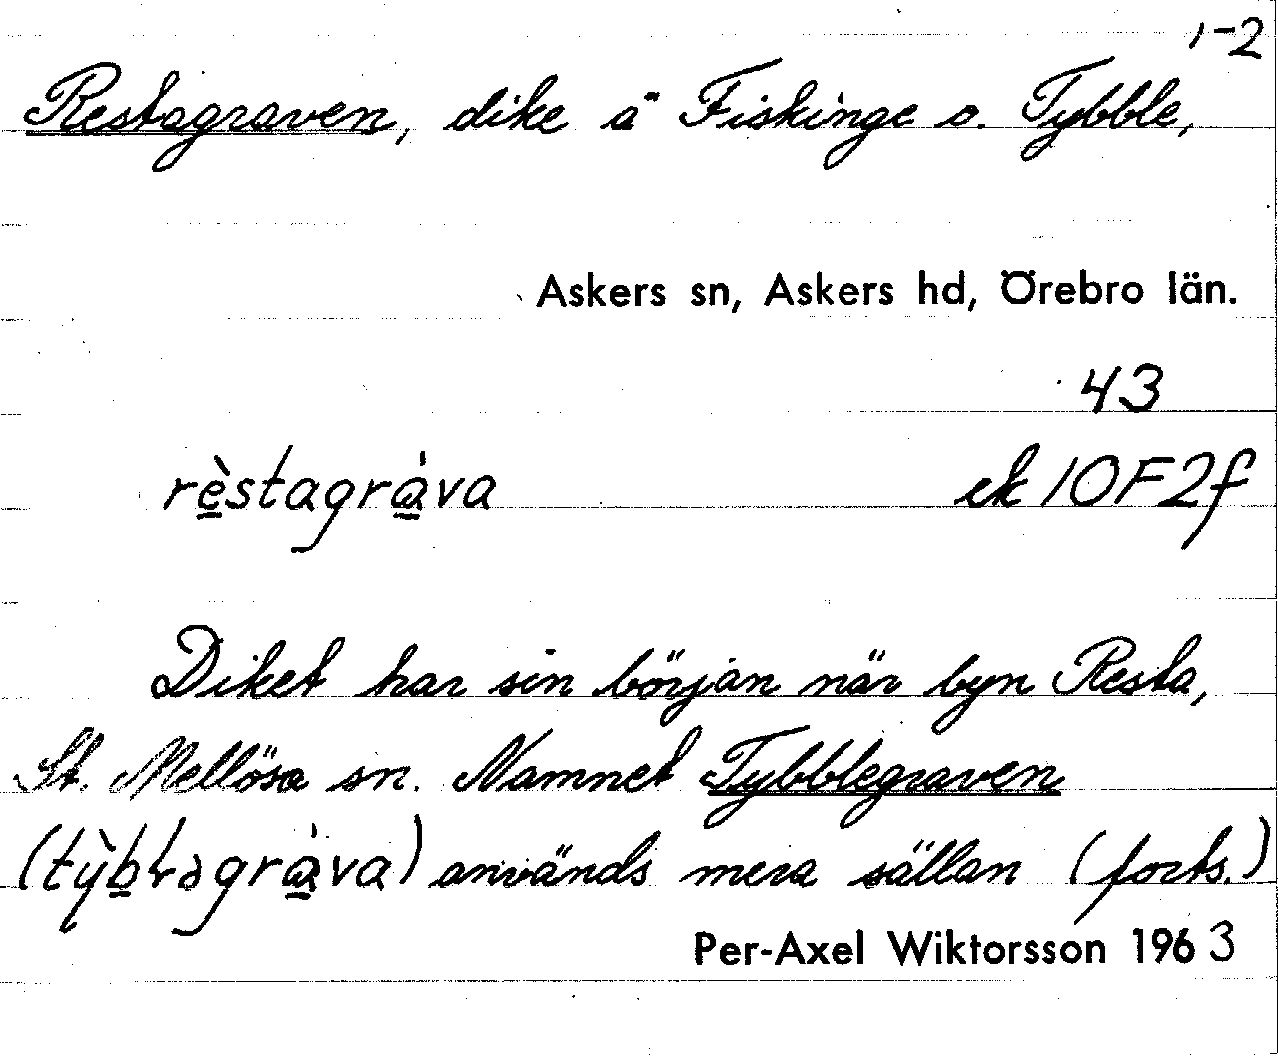 1-2
Restagraven, dike å Fiskinge o. Tybble,
Askers sn, Askers hd, Örebro län.
43
rèstagráva ek 10F2f
Diket har sin början när byn Resta,
St. Mellösa sn. Namnet Tybblegraven
(tỳbləgráva) används mera sällan (forts.)
Per-Axel Wiktorsson 1963